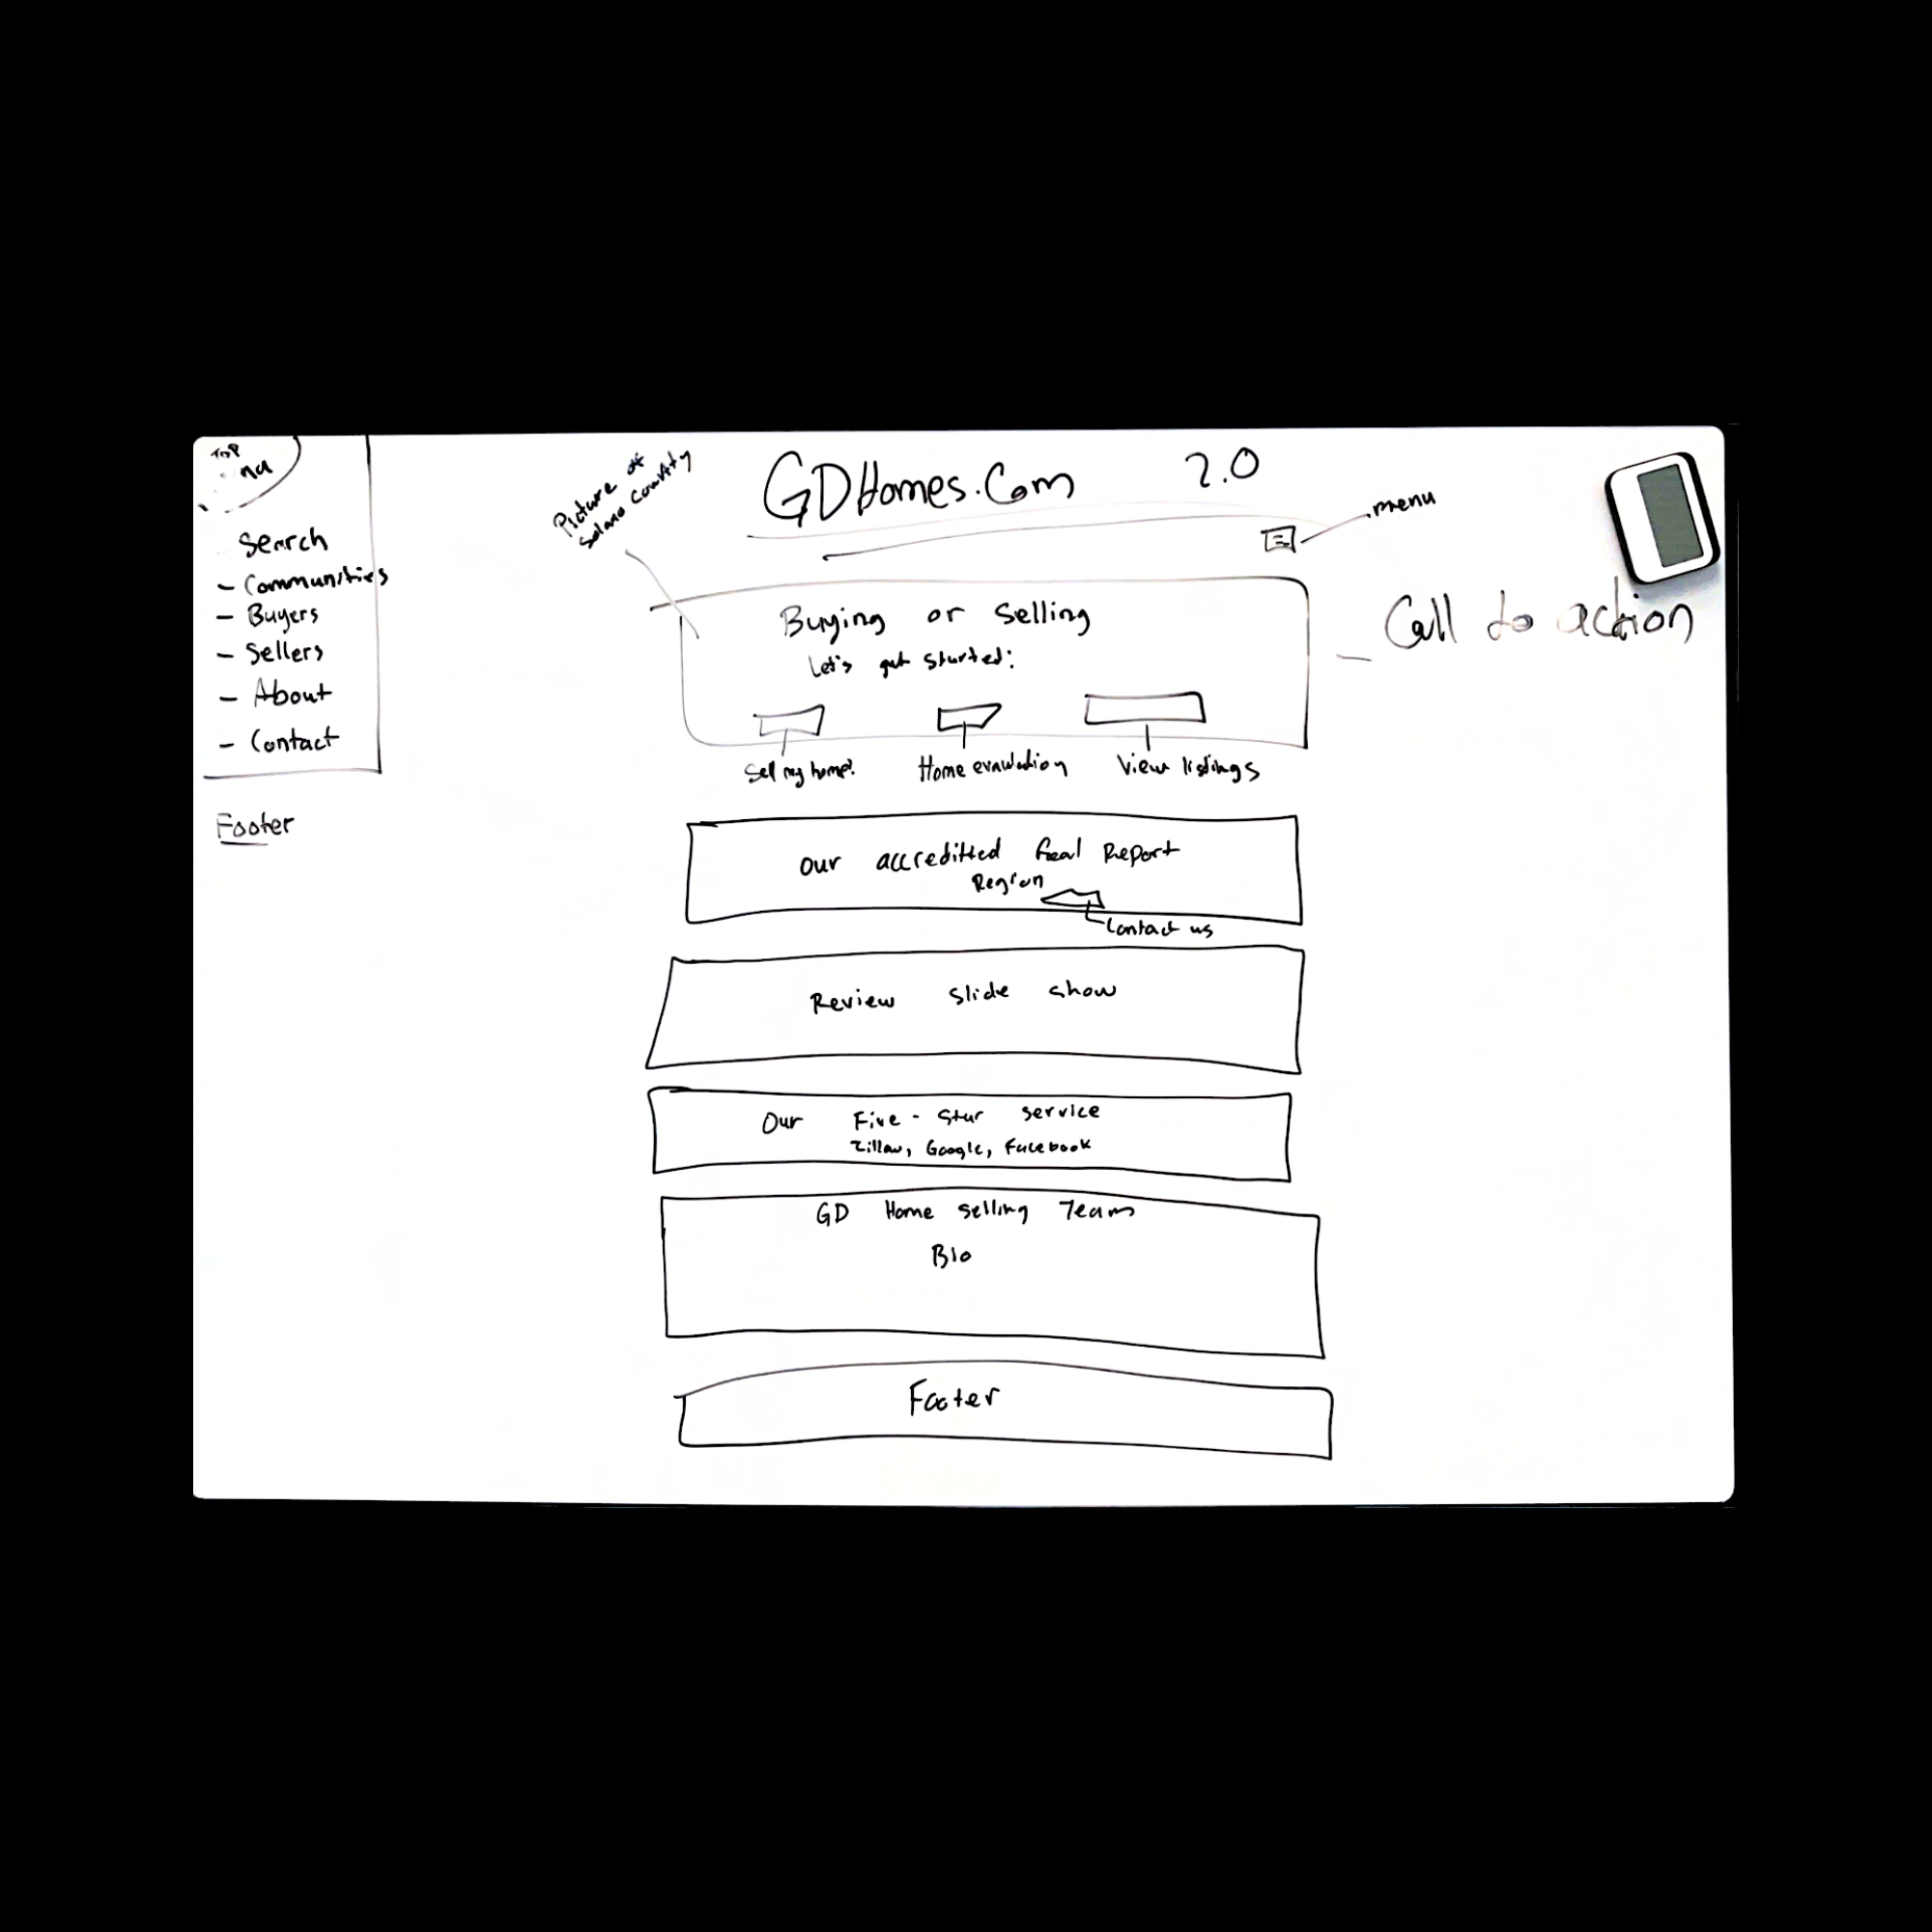 TOP
Search
- Communities
- Buyers
- Sellers
- About
- Contact
Footer
Picture of
Solano County
GDHomes.Com 2.0
menu
Buying or Selling
Let's get started:
Call to action
Sell my home?
Home evaulation
View listings
our accreditted Real Report
Region
Contact us
Review slide show
Our Five-Star service
Zillow, Google, Facebook
GD Home selling Team
Bio
Footer